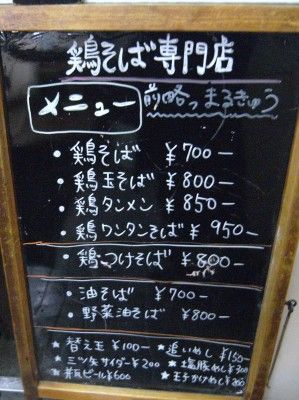 鶏そば専門店
メニュー
前略っまるきゅう
・鶏そば ¥700-
・鶏玉そば ¥800-
・鶏タンメン ¥850-
・鶏ワンタンそば ¥950-
・鶏つけそば ¥800-
・油そば ¥700-
・野菜油そば ¥800-
★替え玉 ¥100- ★追いめし ¥150-
★三ツ矢サイダー¥200 ★塩豚めし¥300
★瓶ビール¥600 ★玉子かけめし¥200